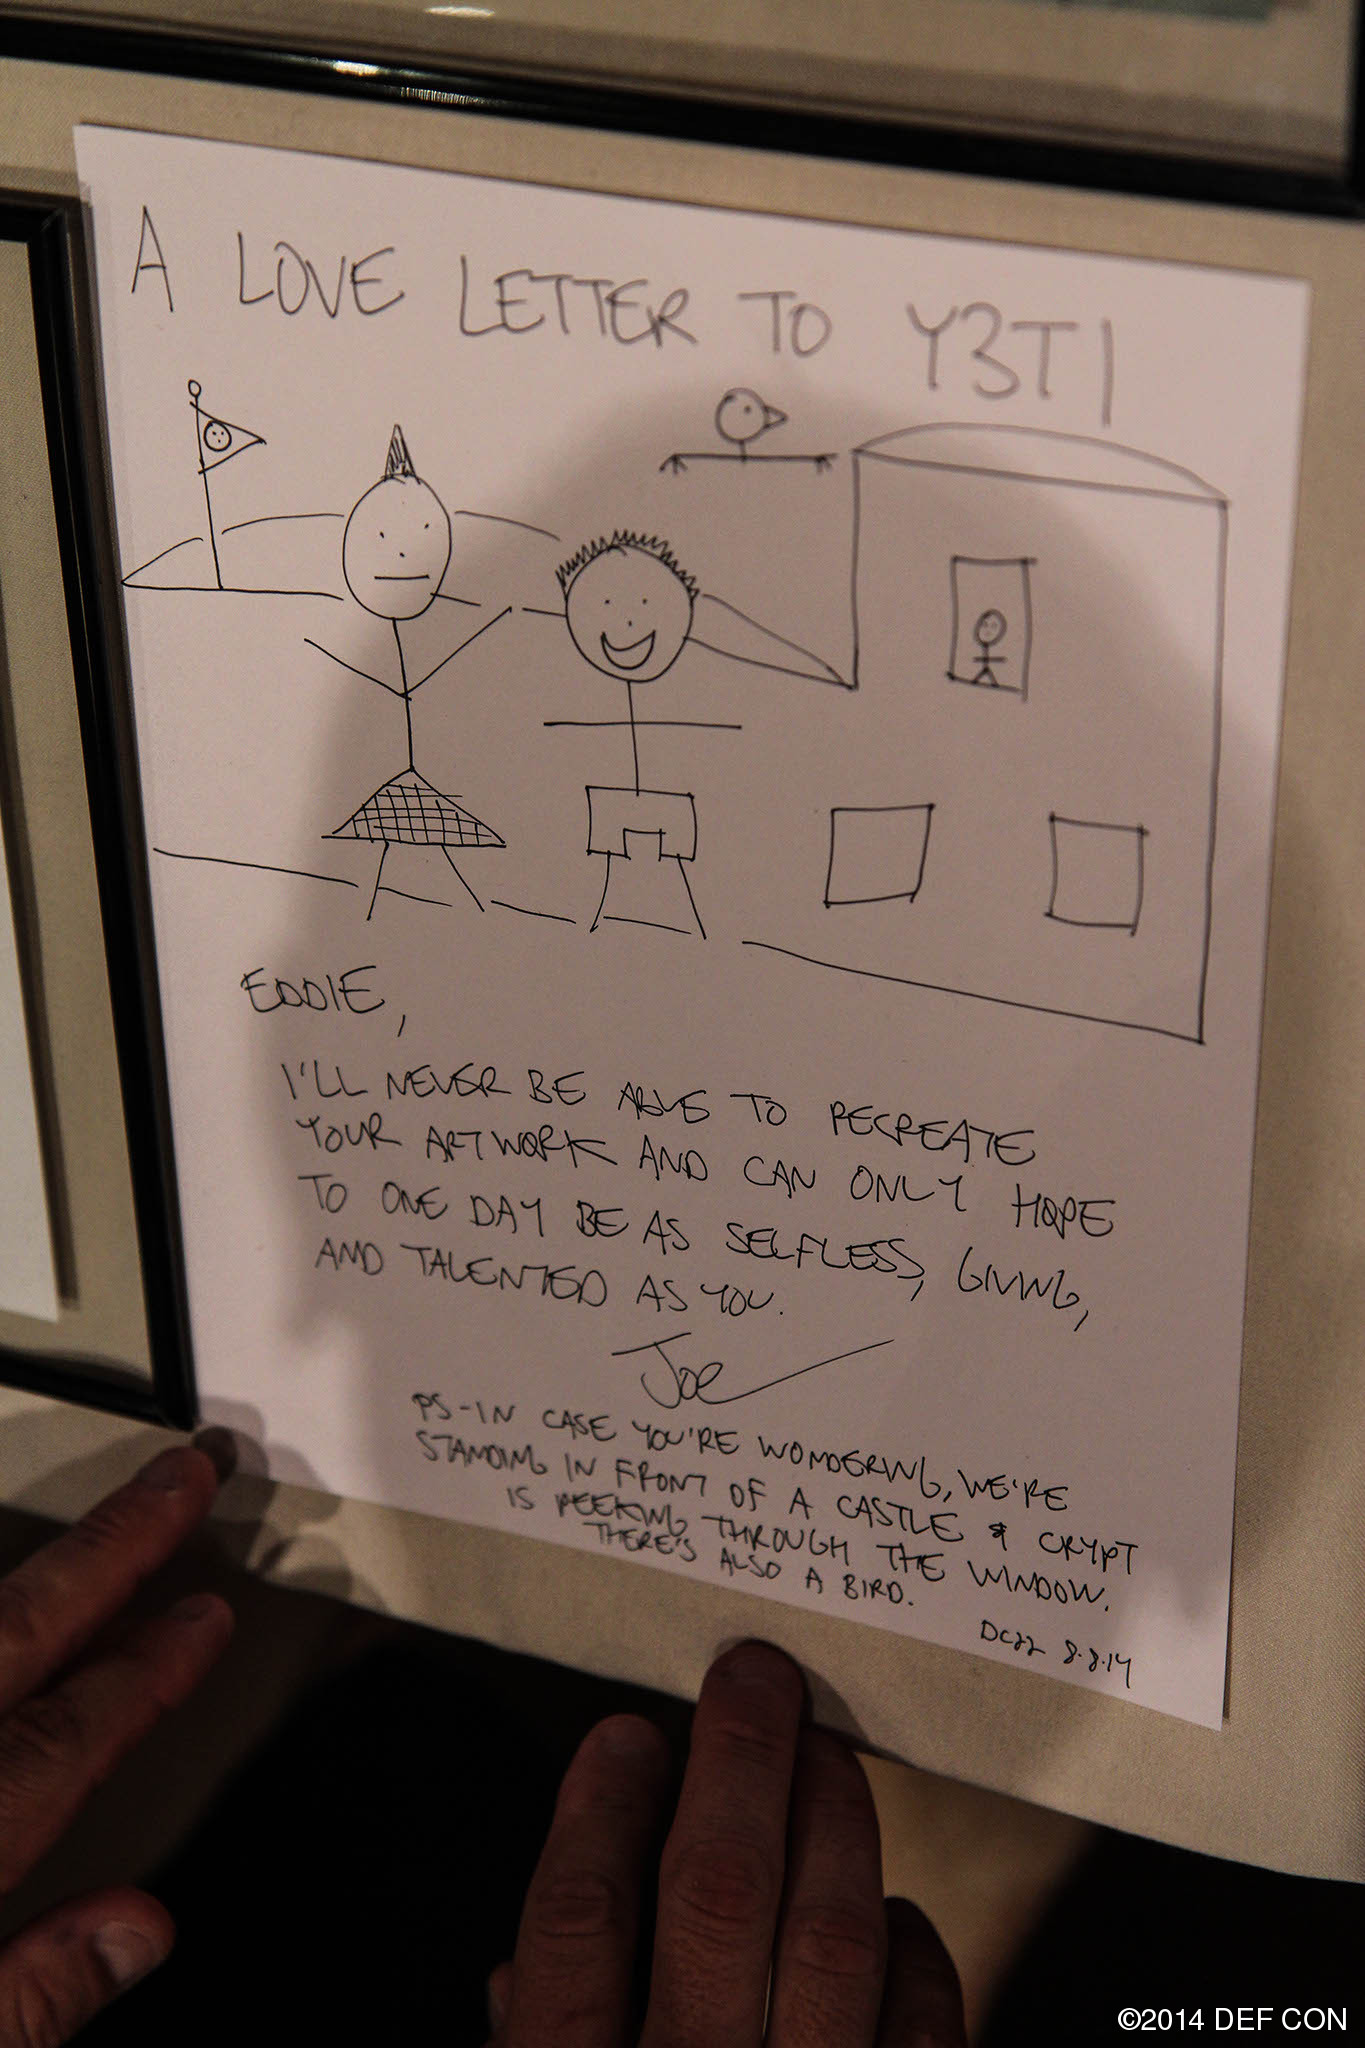 A LOVE LETTER TO Y3T1
EDDIE,
I'LL NEVER BE ABLE TO RECREATE
YOUR ARTWORK AND CAN ONLY HOPE
TO ONE DAY BE AS SELFLESS, GIVING,
AND TALENTED AS YOU.
JOE
PS-IN CASE YOU'RE WONDERING, WE'RE
STANDING IN FRONT OF A CASTLE & CRYPT
IS PEEKING THROUGH THE WINDOW.
THERE'S ALSO A BIRD.
DC22 8.8.14
©2014 DEF CON